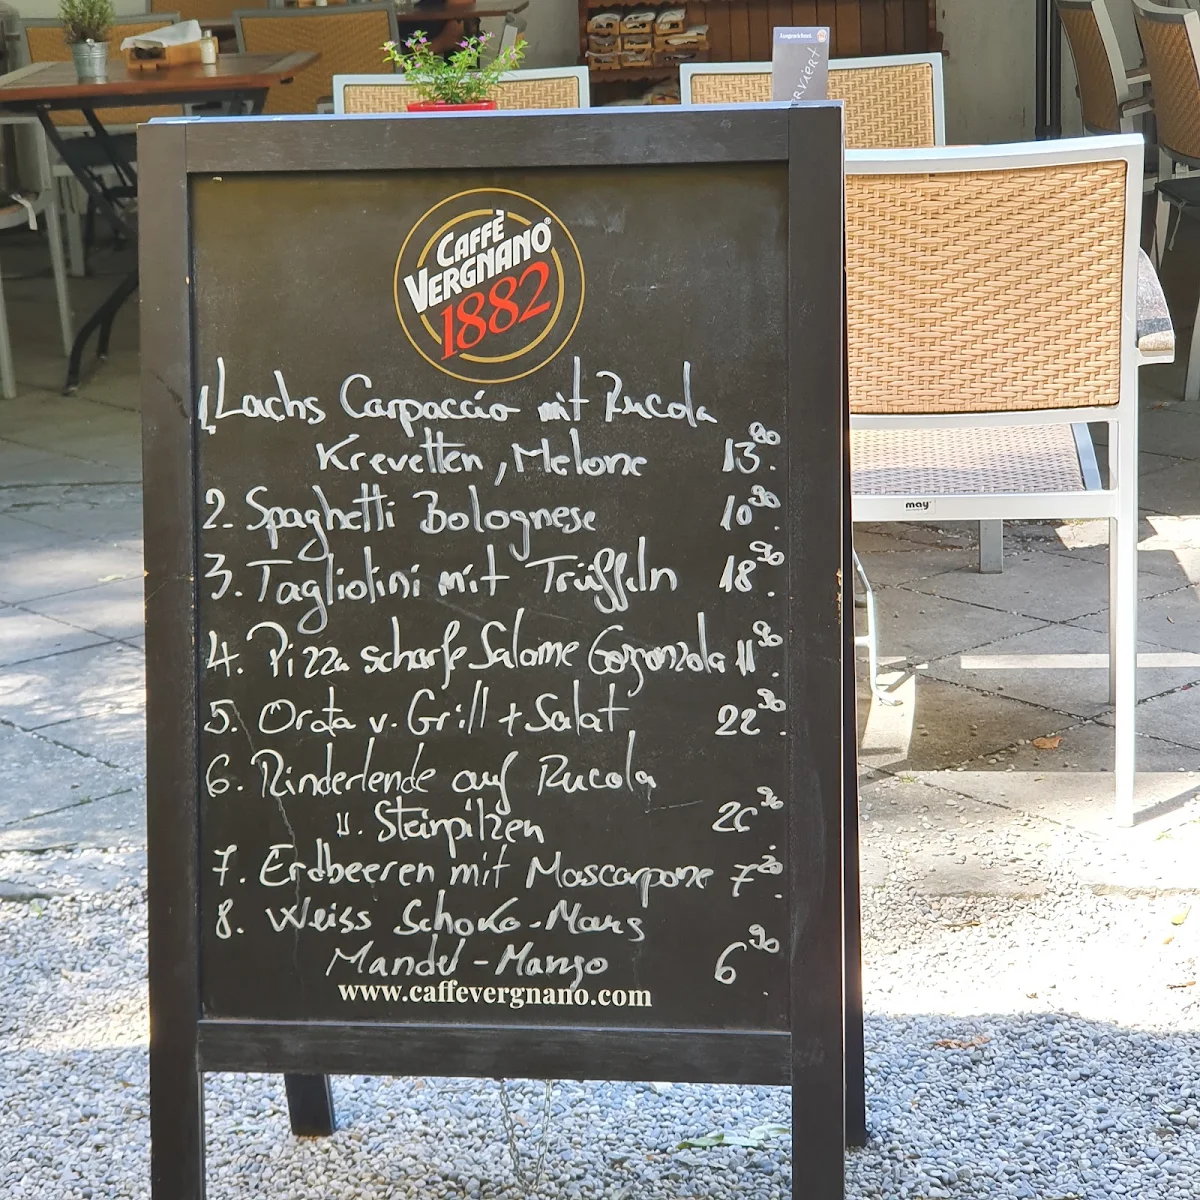 Ausgezeichnet.
rviert
CAFFÈ
VERGNANO®
1882
1. Lachs Carpaccio mit Rucola
Krevetten, Melone 13.90
2. Spaghetti Bolognese 10.90
3. Tagliolini mit Trüffeln 18.90
4. Pizza scharfe Salame Gorgonzola 11.90
5. Orata v. Grill + Salat 22.90
6. Rinderlende auf Rucola
u. Steinpilzen 26.90
7. Erdbeeren mit Mascarpone 7.20
8. Weiss Schoko-Mous
Mandel-Mango 6.90
www.caffevergnano.com
may